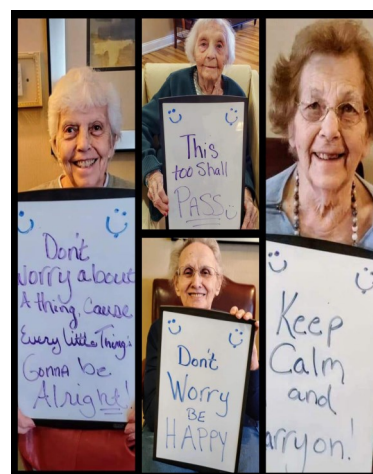 Don't
Worry about
A thing, cause
Every little Thing's
Gonna be
Alright!
This
too Shall
PASS
Don't
Worry
BE
HAPPY
Keep
Calm
and
arry on!